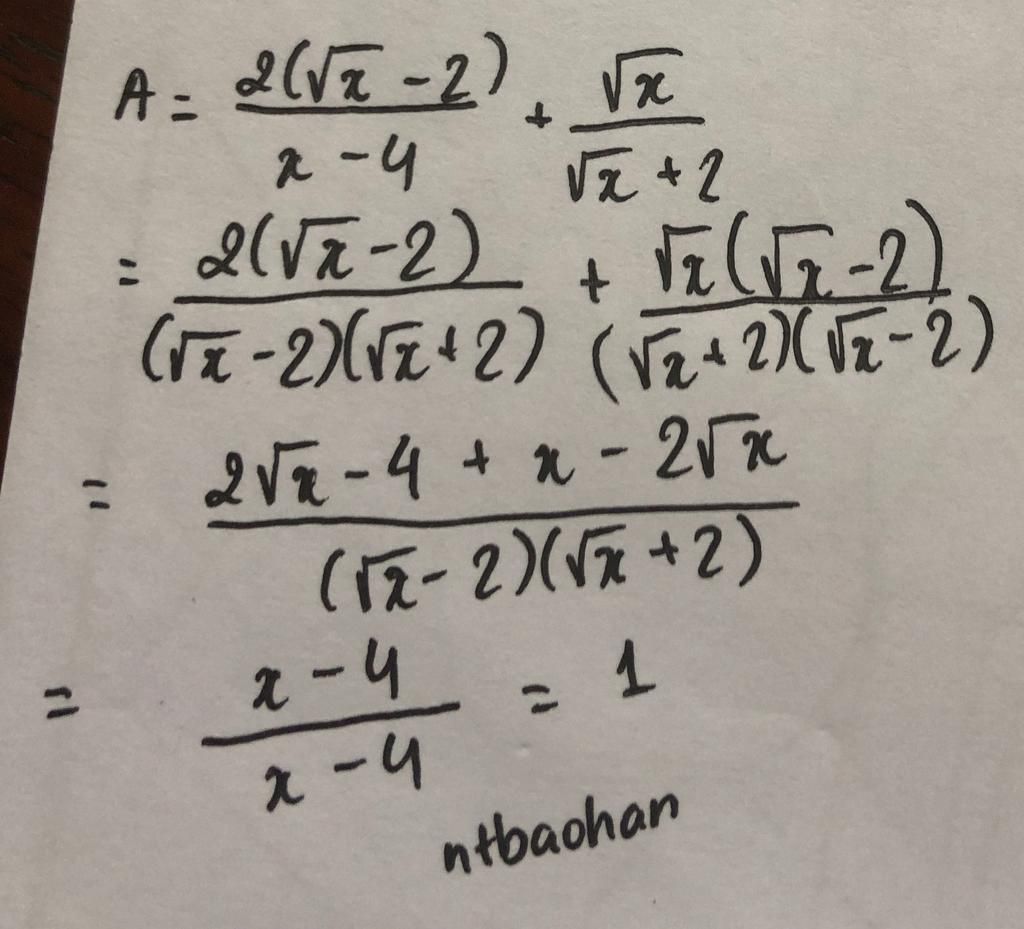 A = \frac{2(\sqrt{x} - 2)}{x - 4} + \frac{\sqrt{x}}{\sqrt{x} + 2}
= \frac{2(\sqrt{x} - 2)}{(\sqrt{x} - 2)(\sqrt{x} + 2)} + \frac{\sqrt{x}(\sqrt{x} - 2)}{(\sqrt{x} + 2)(\sqrt{x} - 2)}
= \frac{2\sqrt{x} - 4 + x - 2\sqrt{x}}{(\sqrt{x} - 2)(\sqrt{x} + 2)}
= \frac{x - 4}{x - 4} = 1
ntbaohan